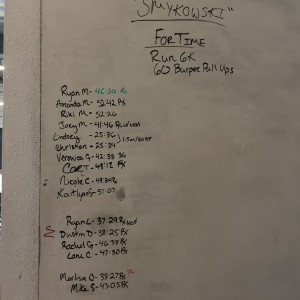 "SMYKOWSKI"
FOR TIME
Run 6K
60 Burpee Pull Ups
Ryan M - 46:30 Rx
Amanda M - 52:42 Rx
Riki M - 52:26
Joey M - 41:46 Rx w/vest
Lindsey - 25:36
Christian - 25:34
Veronica G - 42:33
CART - 49:12 Rx
Nicole C -
Kaitlyn S - 51:07
Ryan L - 37:29 Rx
Dustin D - 38:25 Rx
Rachel G - 46:38 Rx
Lane C - 47:30 Rx
Marlisa O - 38:27 Rx
Mike S - 43:05 Rx